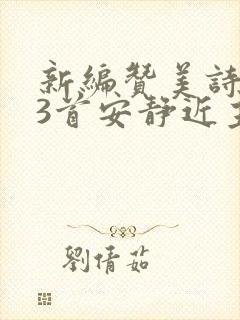 新編贊美詩
3首安靜近
劉倩茹